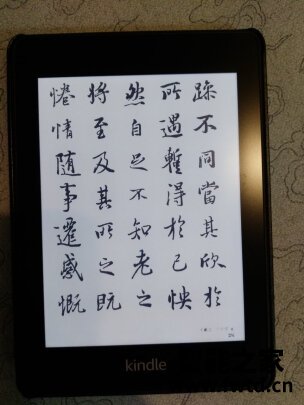 躁不同當其欣於
所遇暫得於己怏
然自足不知老之
将至及其所之既
惓情随事遷感慨
kindle